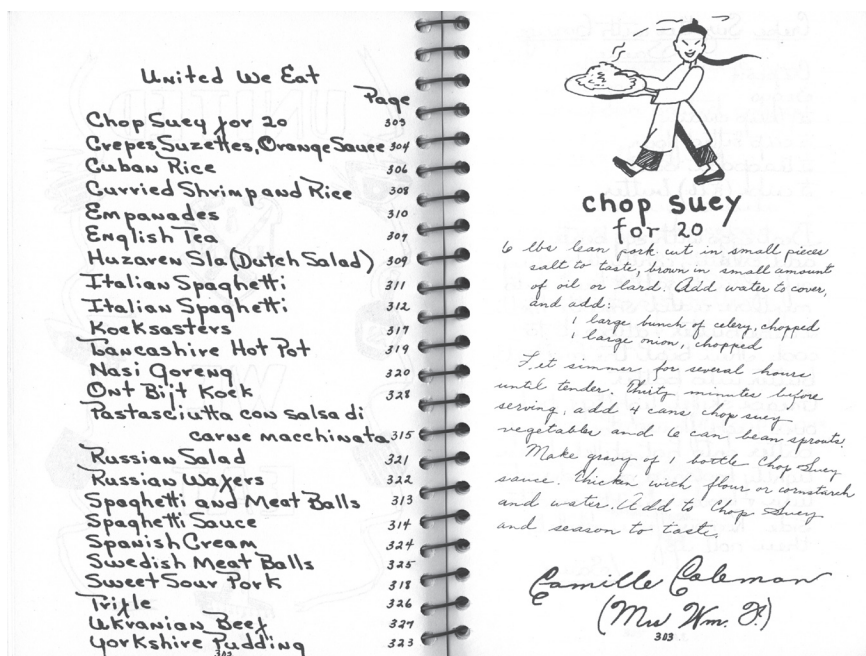 United We Eat
Page
Chop Suey for 20 303
Crepes Suzettes, Orange Sauce 304
Cuban Rice 306
Curried Shrimp and Rice 308
Empanades 310
English Tea 307
Huzaren Sla (Dutch Salad) 309
Italian Spaghetti 311
Italian Spaghetti 312
Koeksasters 317
Lancashire Hot Pot 319
Nasi Goreng 320
Ont Bijt Koek 328
Pastasciutta con salsa di
carne macchinata 315
Russian Salad 321
Russian Wafers 322
Spaghetti and Meat Balls 313
Spaghetti Sauce 314
Spanish Cream 324
Swedish Meat Balls 325
Sweet Sour Pork 318
Trifle 326
Ukranian Beef 327
Yorkshire Pudding 323
302
chop suey
for 20
6 lbs lean pork cut in small pieces
salt to taste, brown in small amount
of oil or lard. Add water to cover,
and add:
1 large bunch of celery, chopped
1 large onion, chopped
Let simmer for several hours
until tender. Thirty minutes before
serving, add 4 cans chop suey
vegetables and 6 can bean sprouts.
Make gravy of 1 bottle Chop Suey
sauce. Thicken with flour or cornstarch
and water. Add to Chop Suey
and season to taste.
Camille Coleman
(Mrs Wm. F.)
303